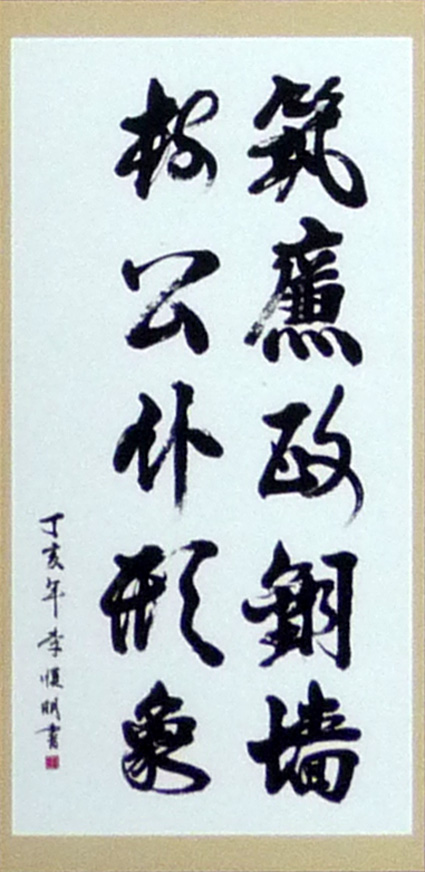 筑廉政銅墙
树公仆形象
丁亥年李恒明書